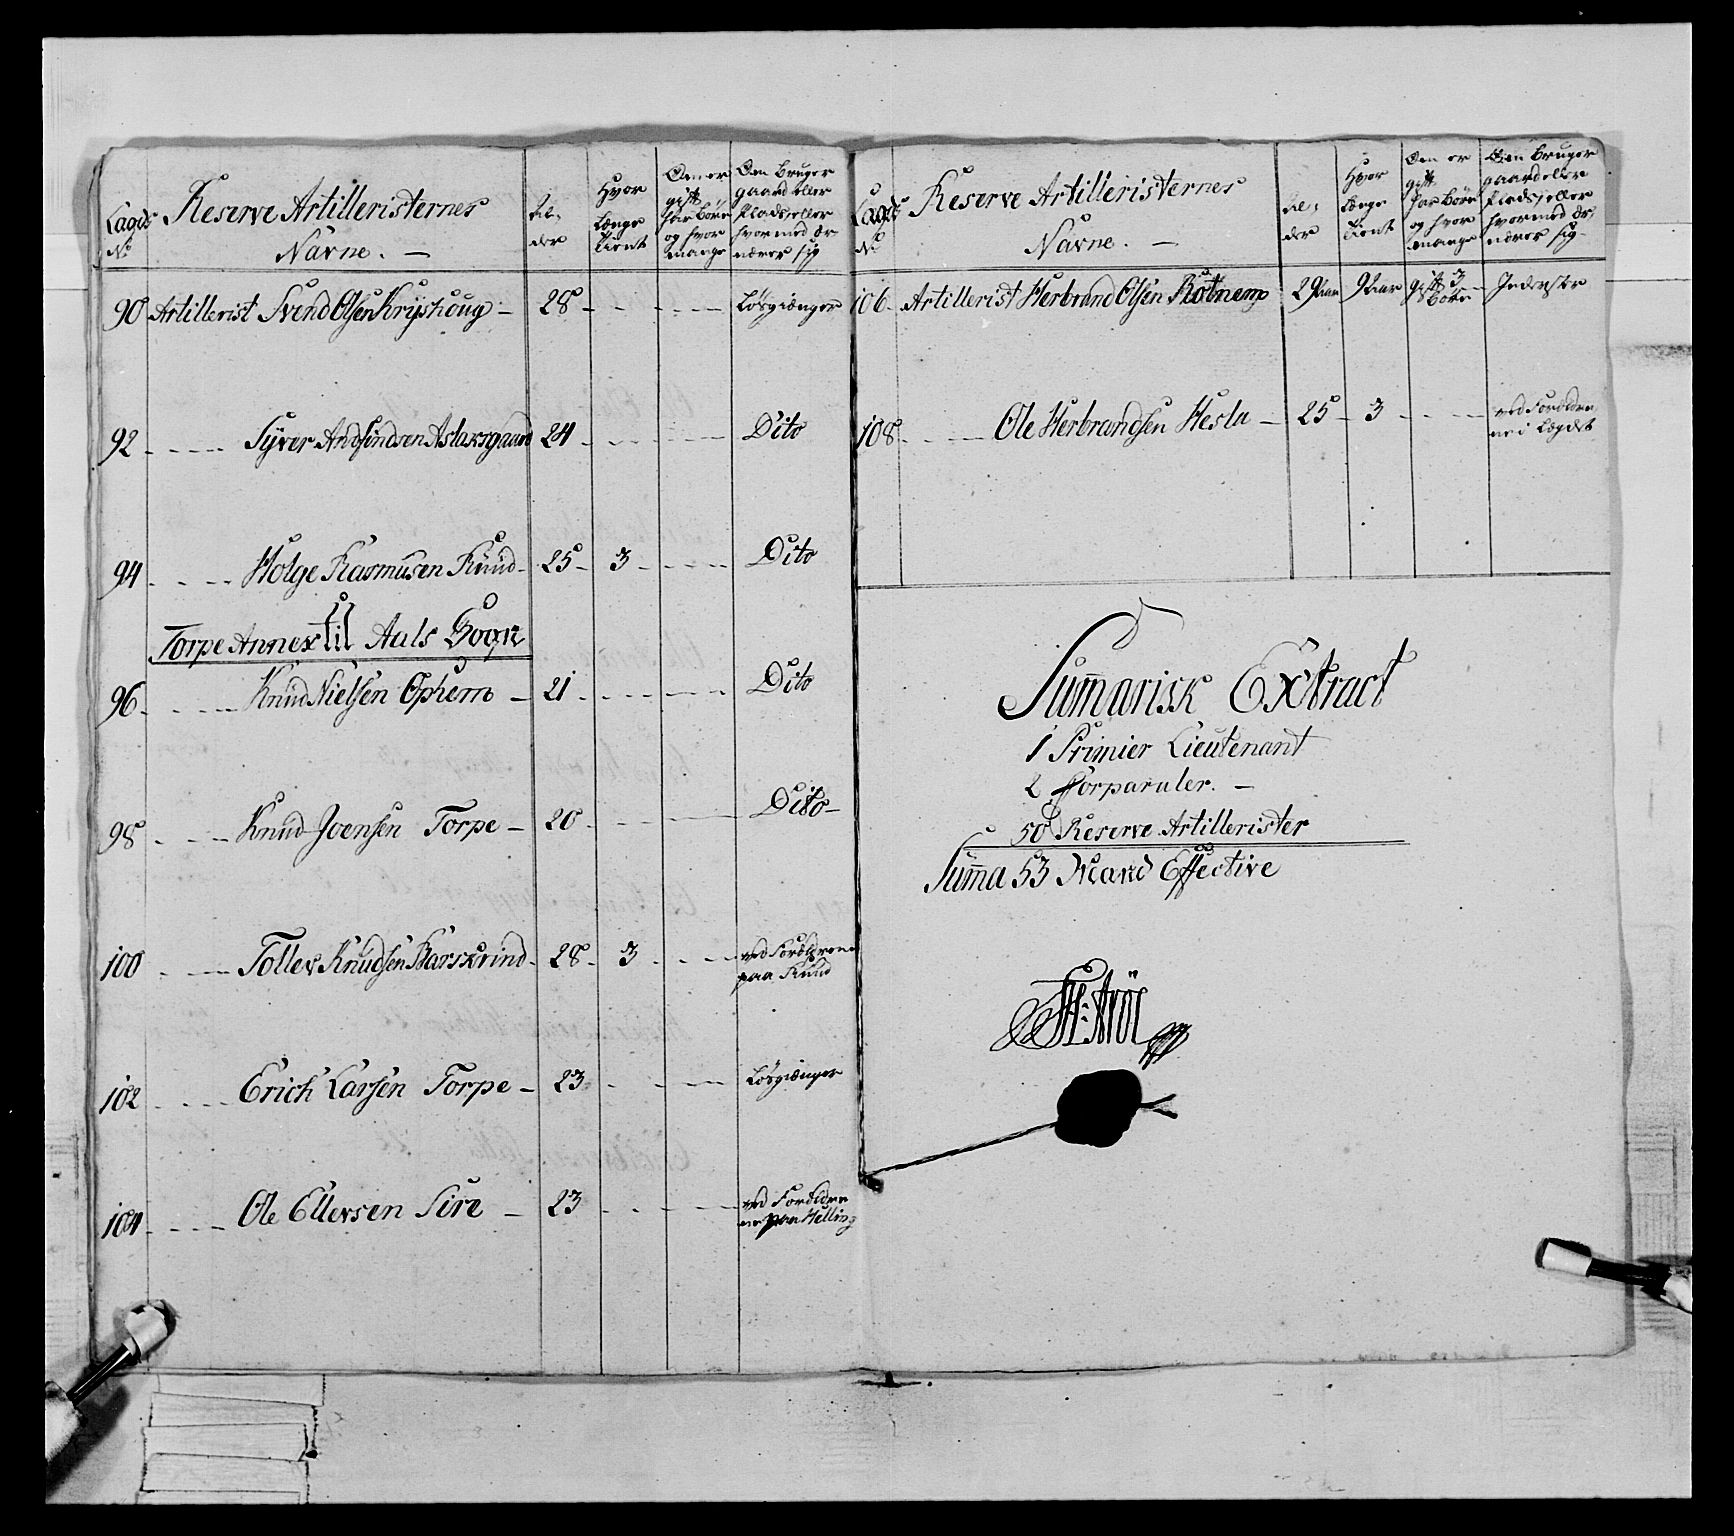 Lægds No
Reserve Artilleristernes
Navne. —
Al-
der
Hvor
Længe
tient
Om er
gift
har Børn
og hvor
mange
Om bruger
gaard eller
Plads, eller
hvormed Er
nærer sig
90 Artillerist Svend Olsen Kryshoug — 28 - - - - - Løsgiænger
92 - - - - Syver Andfindsen Aslaksgaard 24 - - - - - Dito
94 - - - - Holge Rasmusen Ruud - 25 - 3 - - - - Dito
Torpe Annex til Aals Sogn
96 - - - - Knud Nielsen Ophem - 21 - - - - - Dito
98 - - - - Knud Joensen Torpe - 20 - - - - Dito -
100 - - - - Tollev Knudsen - 28 - 3 - - - ved Forældrene
paa Ruud
102 - - - - Erich Larsen Torpe - 23 - - - - Løsgiænger
104 - - - - Ole Ellevsen Sire - 23 - - - - ved Forældre
ne paa Helling
Lægds
No
Reserve Artilleristernes
Navne. —
Al-
der
Hvor
Længe
tient
Om er
gift
har Børn
og hvor
mange
Om bruger
gaard eller
Plads, eller
hvormed Er
nærer sig -
106 - Artillerist Herbrand Olsen Rotnem 29 aar 9 aar gift 3 Børn - Inderster
108 - - - - Ole Herbrandsen Hesla - 25 - 3 - - - - ved Forældre
ne i Lægdet
Summarisk Extract
1 Primier Lieutenant
2 Corporaler. —
50 Reserve Artillerister
Summa 53 Mand Effective